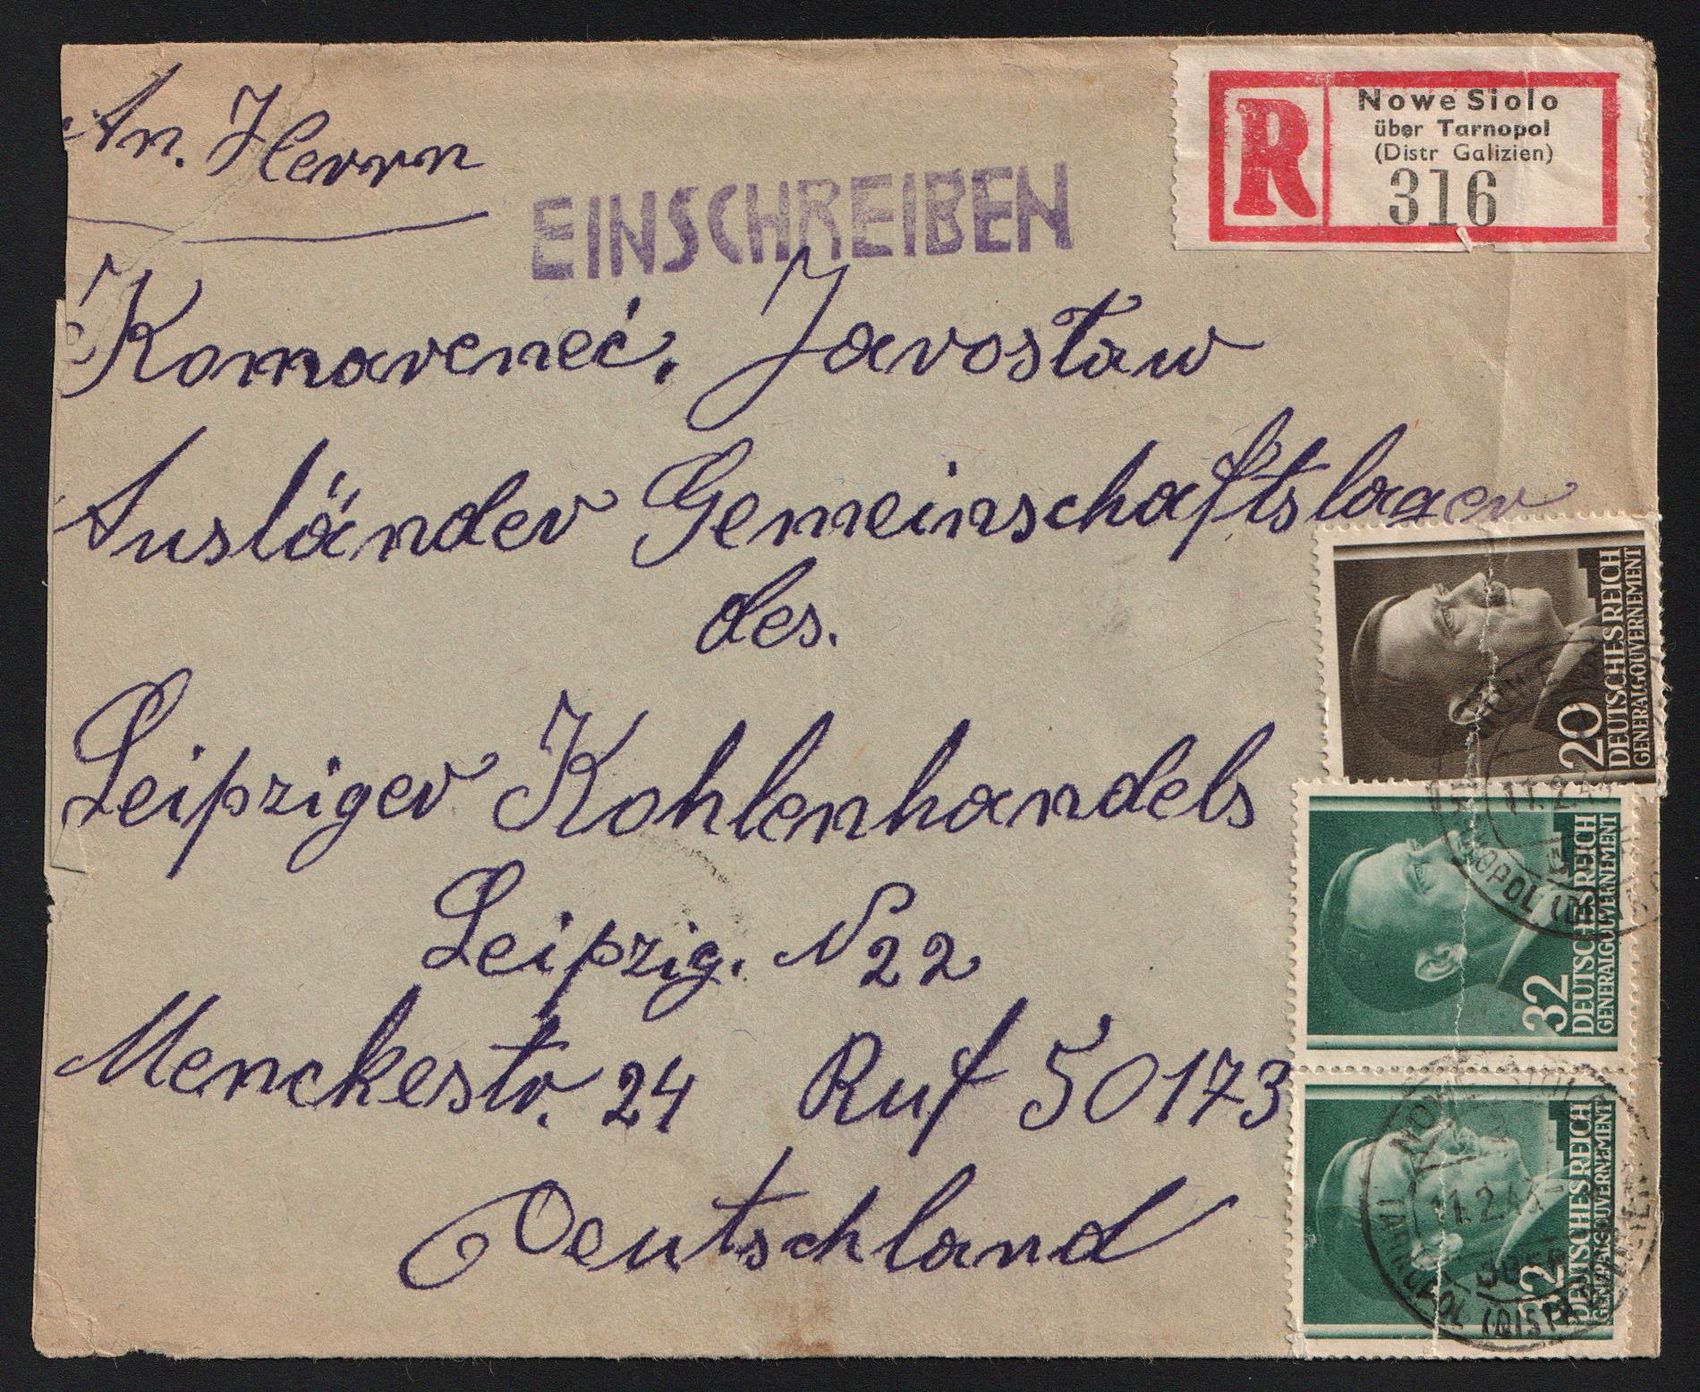 An. Herrn
EINSCHREIBEN
R
Nowe Siolo
über Tarnopol
(Distr Galizien)
316
Komareneć, Jarosław
Ausländer Gemeinschaftslager
des.
Leipziger Kohlenhandels
Leipzig. N 22
Menckestr. 24 Ruf 50173
Deutschland
20
DEUTSCHES REICH
GENERALGOUVERNEMENT
32
DEUTSCHES REICH
GENERALGOUVERNEMENT
32
DEUTSCHES REICH
GENERALGOUVERNEMENT
TARNOPOL
11.2.